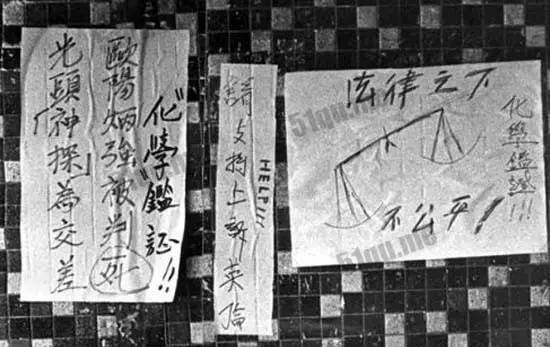 “化學”鑑証!!
歐陽炳強被判死
光頭「神探」為交差
HELP!!!
請支持上訴英倫
法律之下
不公平!
化學鑑證!!!
51qu.me
51qu.me
51qu.me
51qu.me